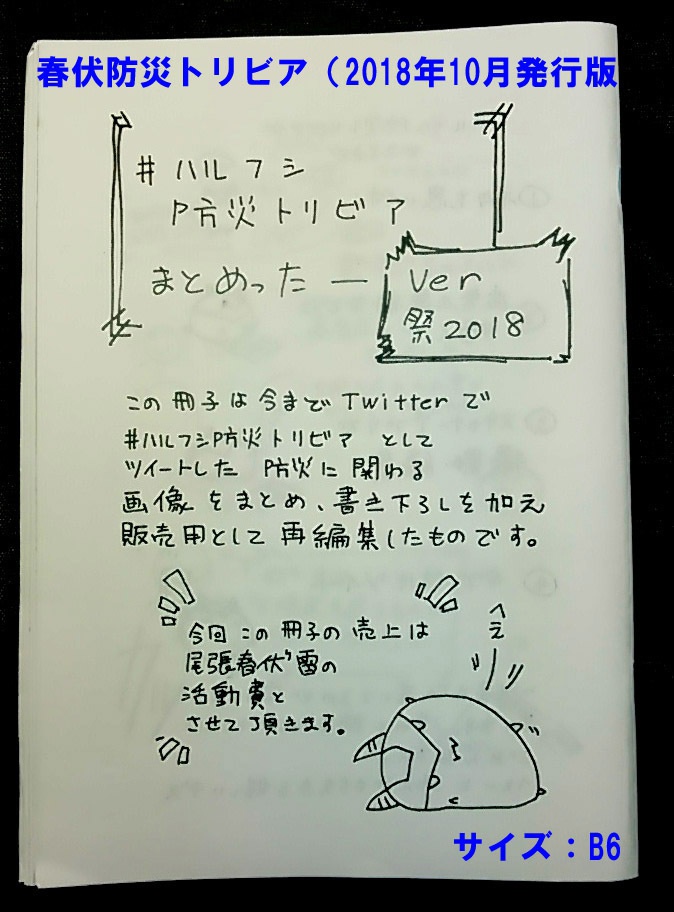 春伏防災トリビア（2018年10月発行版
#ハルフシ
P防災トリビア
まとめったー
Ver
祭2018
この冊子は今までTwitterで
#ハルフシP防災トリビア として
ツイートした 防災に関わる
画像をまとめ、書き下ろしを加え
販売用として再編集したものです。
今回この冊子の売上は
尾張春伏"雷の
活動費と
させて頂きます。
へぇ
サイズ：B6